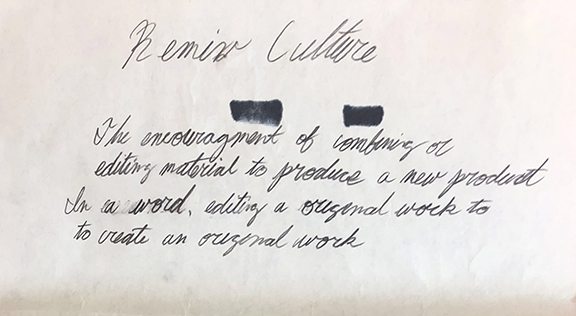 Remix Culture
The encouragment of combining or
editing material to produce a new product
In a word, editing a original work to
to create an original work